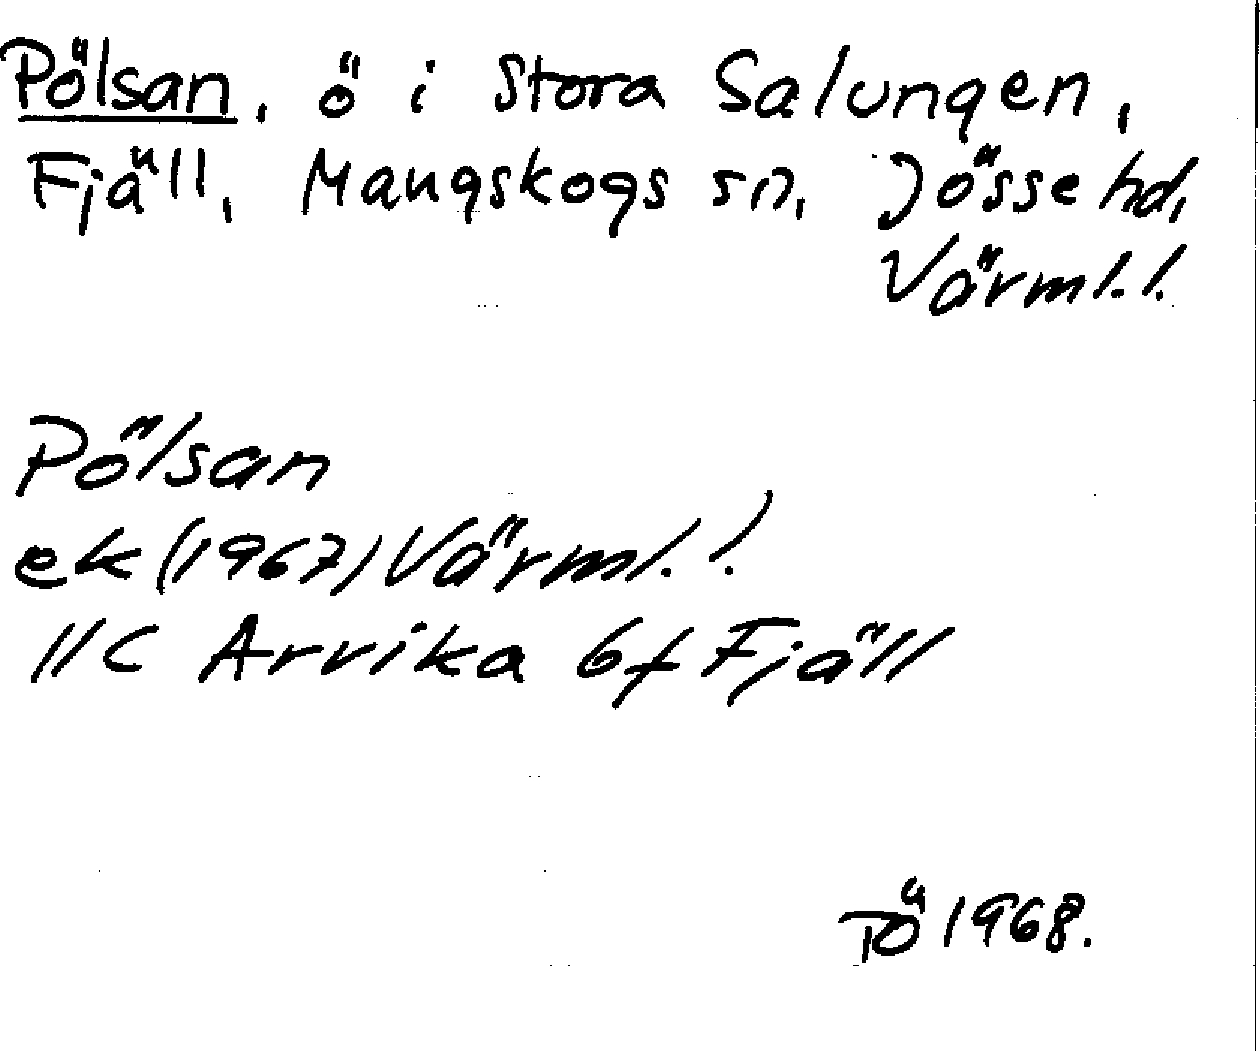 Pölsan, ö i Stora Salungen,
Fjäll, Mangskogs sn, Jösse hd,
Värml. l.
Pölsan
ek (1967) Värml. l.)
11C Arvika 6f Fjäll
TÖ 1968.